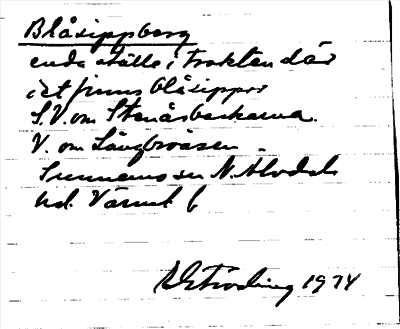 Blåsippberg
enda ställe i trakten där
det finns blåsippor
S.V. om Stenåsbackarna.
V. om Långbråsen.
Sunnemo sn N. Älvdals
hd. Värml
1974